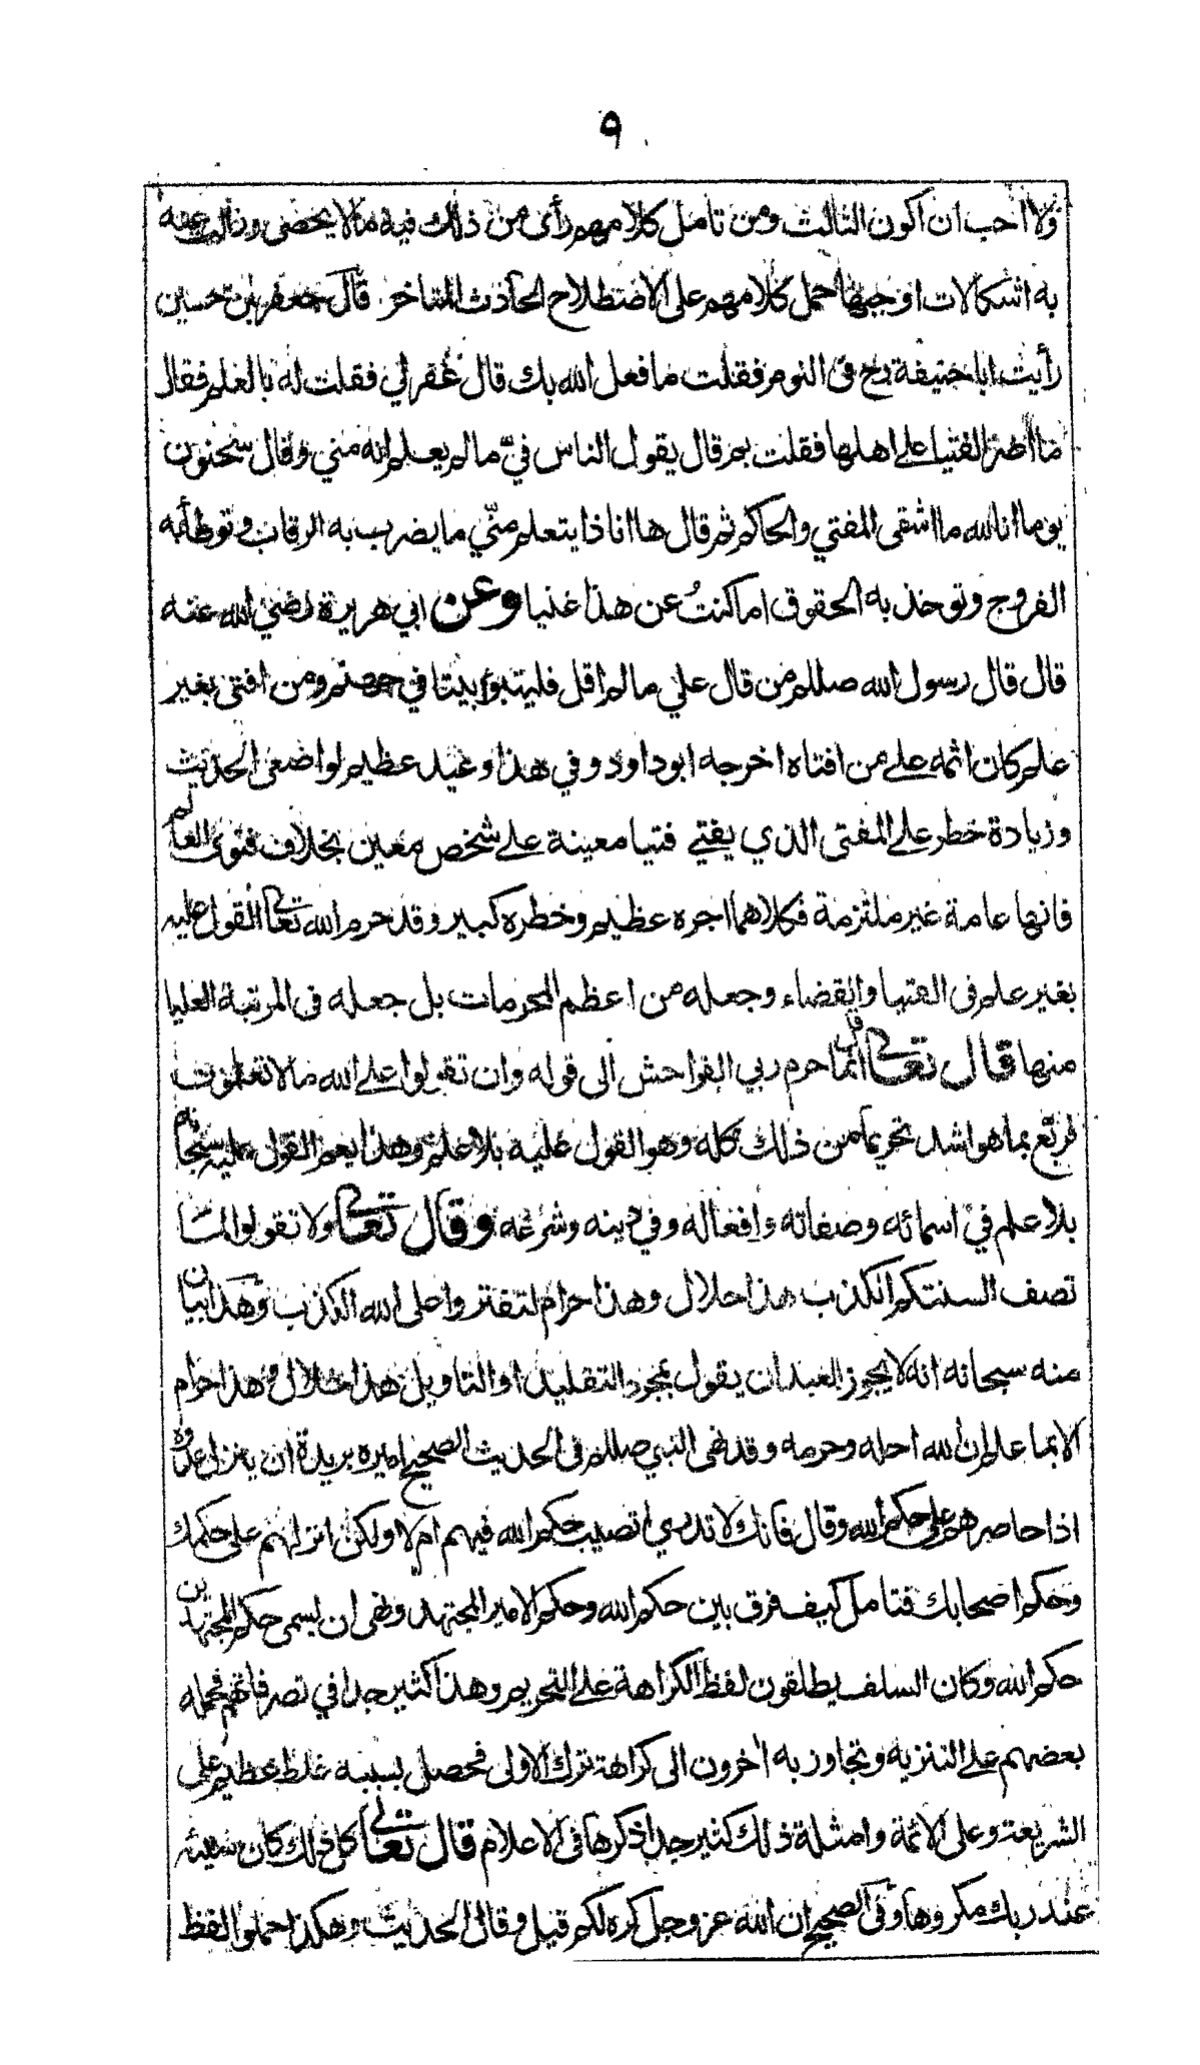 ٩
ولا احب ان اكون الثالث ومن تامل كلامهم رأى من ذلك فيه ما لا يحصى وزالت عنه
به اشكالات اوجبها حمل كلامهم على الاصطلاح الحادث المتاخر قال جعفر بن حسين
رأيت ابا حنيفة رح فى النوم فقلت ما فعل الله بك قال غفر لي فقلت له بالعلم فقال
ما اضر الفتيا على اهلها فقلت بم قال يقول الناس فيّ ما لم يعلم انه مني وقال سحنون
يوما انا لله ما اشقى المفتي والحاكم ثم قال ها انا ذا يتعلم منّي ما يضرب به الرقاب وتوطأ به
الفروج وتوخذ به الحقوق اما كنتُ عن هذا غنيا وعن ابي هريرة رضي الله عنه
قال قال رسول الله صللم من قال علي ما لم اقل فليتبوّأ بيتا في جهنم ومن افتى بغير
علم كان اثمه على من افتاه اخرجه ابو داود وفي هذا وعيد عظيم
وزيادة خطر على المفتى الذي يفتي فتيا معينة على شخص معين بخلاف فتوى العالم
فانها عامة غير ملتزمة فكلاهما اجره عظيم وخطره كبير وقد حرم الله تعالى القول عليه
بغير علم فى الفتيا والقضاء وجعله من اعظم المحرمات بل جعله فى المرتبة العليا
منها قال تعالى قل انما حرم ربي الفواحش الى قوله وان تقولوا على الله ما لا تعلمون
فربّع بما هو اشد تحريما من ذلك كله وهو القول عليه بلا علم وهذا يعم القول عليه سبحانه
بلا علم فيّ اسمائه وصفاته وافعاله وفي دينه وشرعه وقال تعالى ولا تقولوا لما
تصف السنتكم الكذب هذا حلال وهذا حرام لتفتروا على الله الكذب وهذا بيان
منه سبحانه انه لا يجوز للعبد ان يقول بمجرد التقليد او التاويل هذا حلال وهذا حرام
الا بما علم ان الله احله وحرمه وقد نهى النبي صللم فى الحديث الصحيح اميره بريدة ان ينزل عدوه
اذا حاصرهم على حكم الله وقال فانك لا تدري اتصيب حكم الله فيهم ام لا ولكن انزلهم على حكمك
وحكم اصحابك فتامل كيف فرق بين حكم الله وحكم الامير المجتهد ونهى ان يسمى حكم المجتهدين
حكم الله وكان السلف يطلقون لفظ الكراهة على التحريم وهذا كثير جدا في تصرفاتهم فحمله
بعضهم على التنزيه وتجاوز به آخرون الى كراهة ترك الاولى فحصل بسببه غلط عظيم على
الشريعة وعلى الائمة وامثلة ذلك كثير جدا ذكرها فى الاعلام قال تعالى كل ذلك كان سيئه
عند ربك مكروها وفى الصحيح ان الله عز وجل كره لكم قيل وقال الحديث وهكذا حملوا لفظ